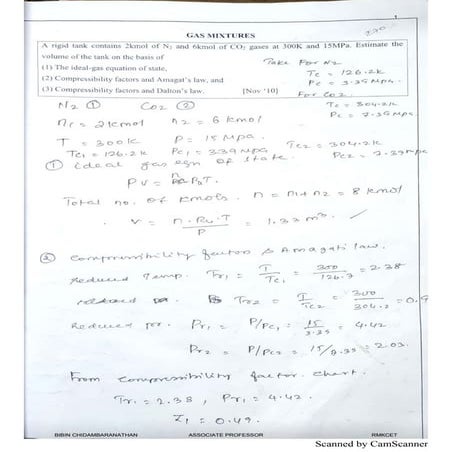 1
GAS MIXTURES
A rigid tank contains 2kmol of N₂ and 6kmol of CO₂ gases at 300K and 15MPa. Estimate the
volume of the tank on the basis of
(1) The ideal-gas equation of state,
(2) Compressibility factors and Amagat's law, and
(3) Compressibility factors and Dalton's law. [Nov '10]
Take For N2
Tc = 126.2k
Pc = 3.39 Mpa.
For CO2
Tc = 304.2k
Pc = 7.39 Mpa.
N2 ① CO2 ②
n1 = 2 kmol n2 = 6 kmol
T = 300k P = 15 Mpa.
Tc1 = 126.2k Pc1 = 339 Mpa Tc2 = 304.2k
Pc2 = 7.39 Mpa
① ideal gas eqn of state.
PV = n RuT
Total no. of kmols. n = n1+n2 = 8 kmol
V = n.Ru.T / P = 1.33 m³.
② Compressibility factor & Amagat law.
reduced Temp. Tr1 = T/Tc1 = 300/126.2 = 2.38
Tr2 = T/Tc2 = 300/304.2 = 0.9
Reduced pr. Pr1 = P/Pc1 = 15/3.39 = 4.42
Pr2 = P/Pc2 = 15/7.39 = 2.03.
From compressibility factor chart.
Tr1 = 2.38, Pr1 = 4.42.
Z1 = 0.99.
BIBIN CHIDAMBARANATHAN ASSOCIATE PROFESSOR RMKCET
Scanned by CamScanner